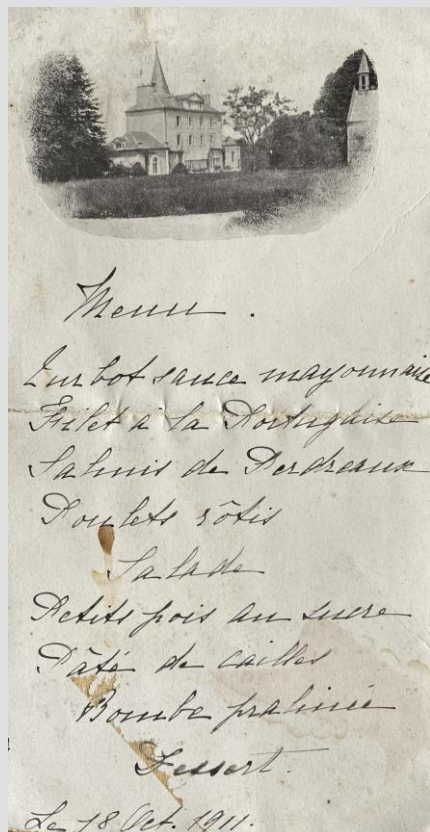 Menu.
Turbot sauce mayonnaise
Filet à la Portugaise
Salmis de Perdreaux
Poulets rôtis
Salade
Petits pois au sucre
Pâté de cailles
Bombe pralinée
Dessert.
Le 18 Oct. 1911.